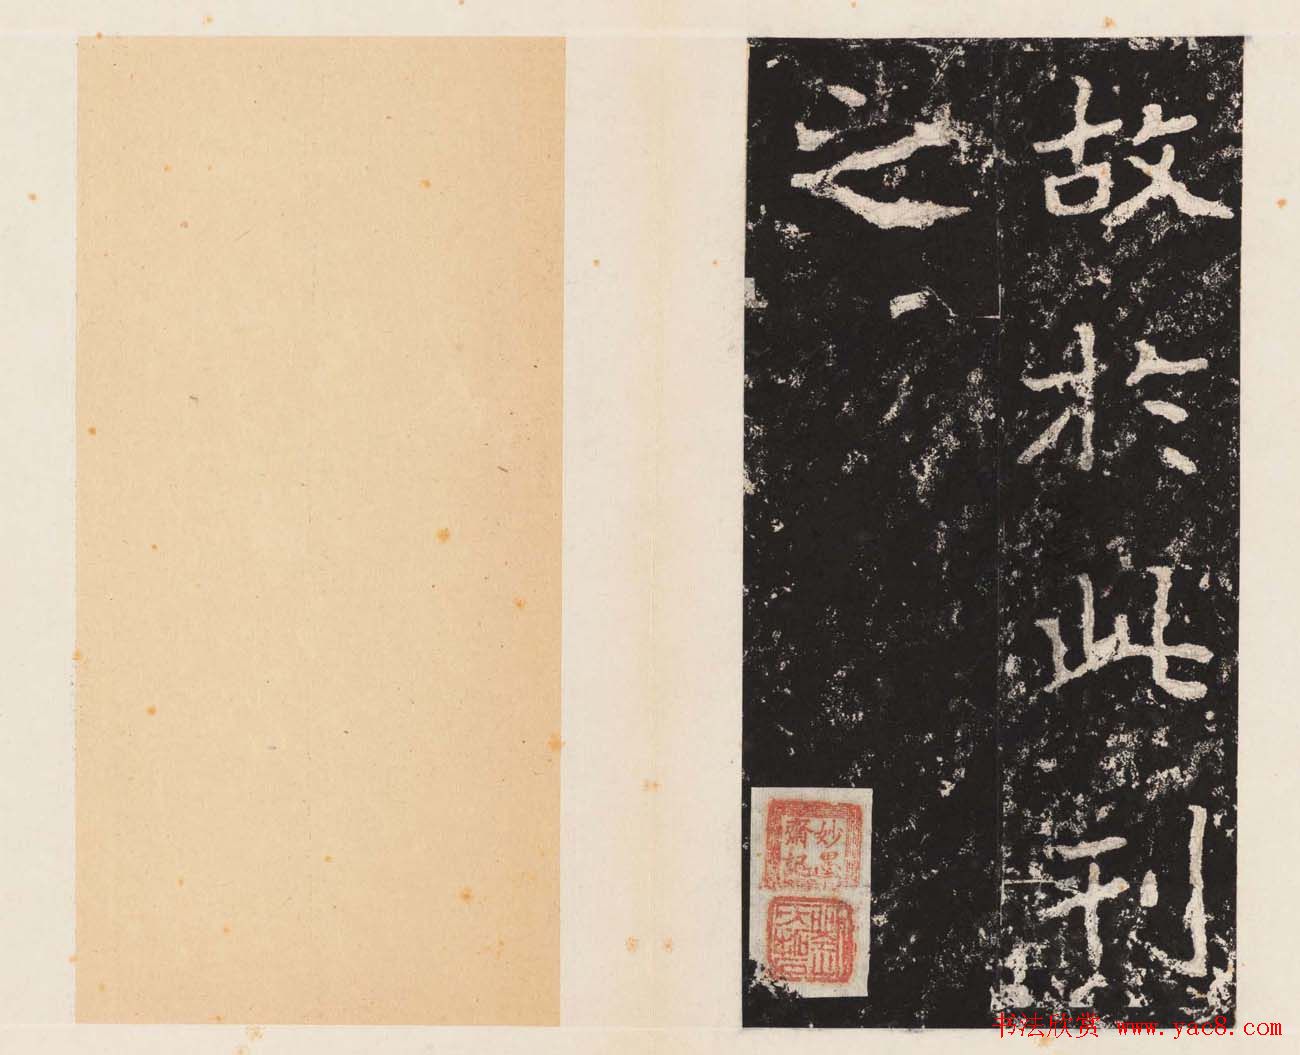 故於此刊
之
妙墨
齋記
书法欣赏 www.yac8.com